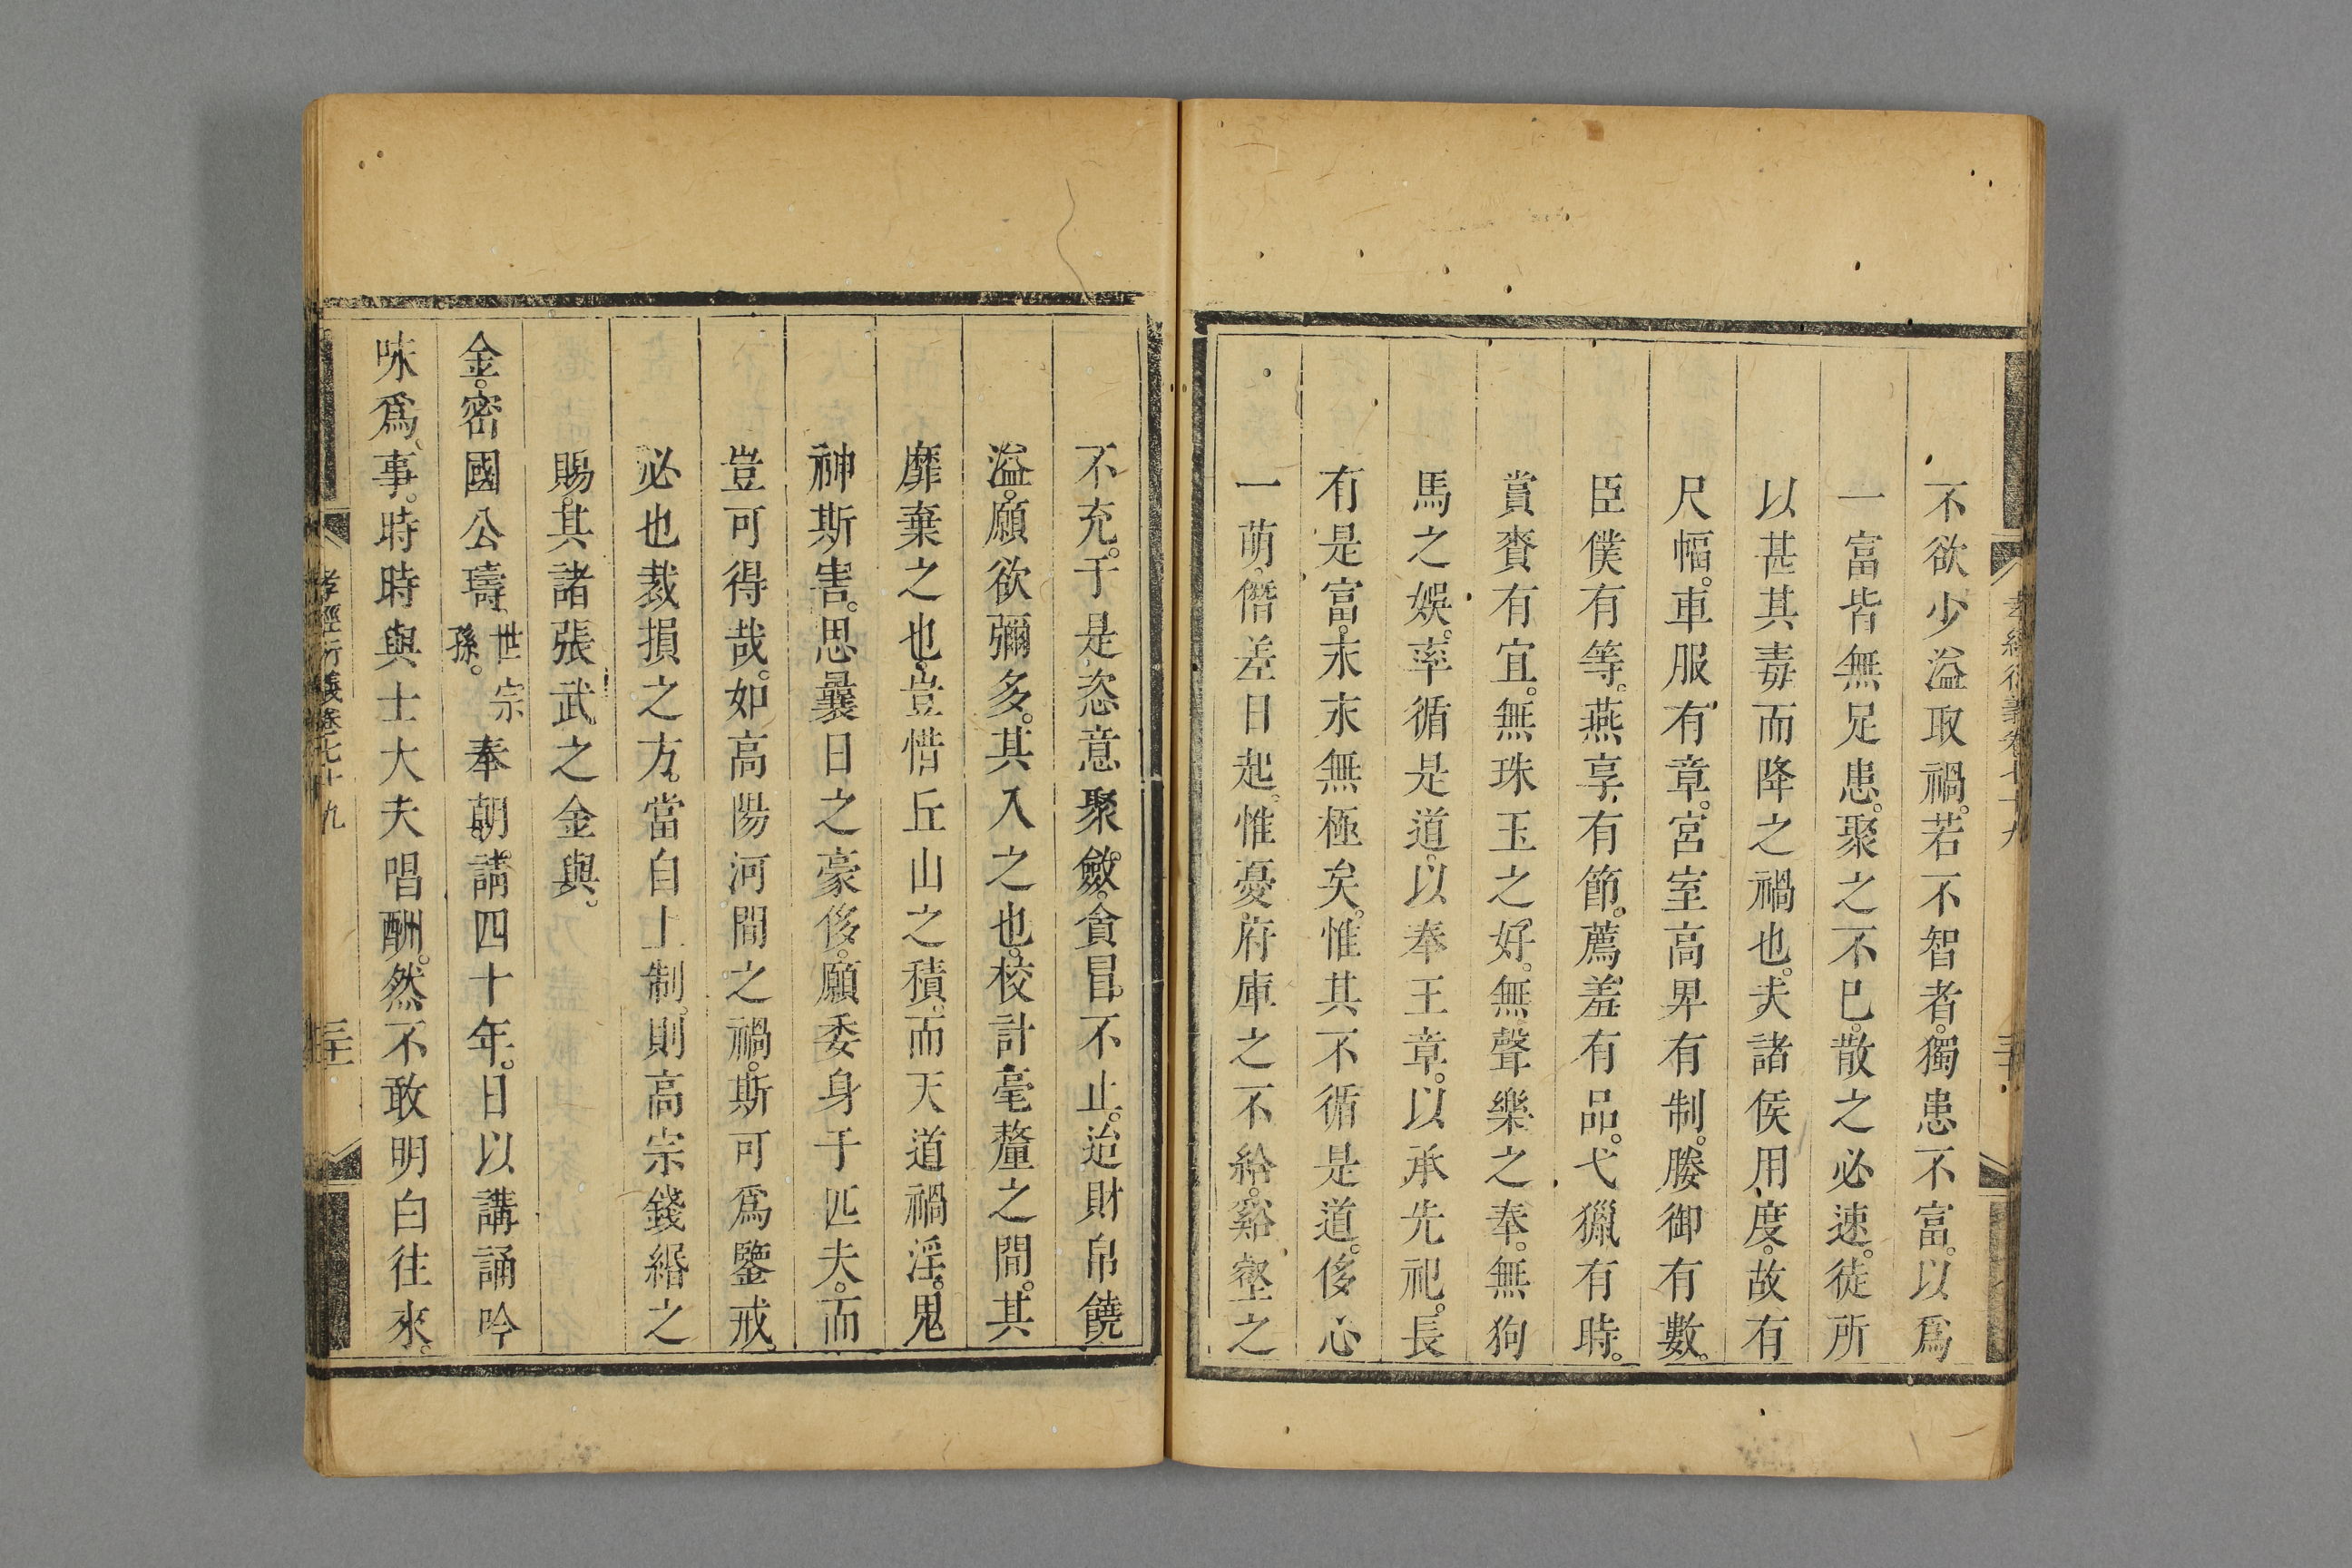 不欲少溢取禍。若不智者。獨患不富。以爲
一富皆無足患。聚之不已。散之必速。徒所
以甚其毒而降之禍也。夫諸侯用度。故有
尺幅。車服有章。宮室高卑有制。媵御有數。
臣僕有等。燕享有節。薦羞有品。弋獵有時。
賞賚有宜。無珠玉之好。無聲樂之奉。無狗
馬之娛。率循是道。以奉王章。以承先祀。長
有是富。末末無極矣。惟其不循是道。侈心
一萌。僭差日起。惟憂府庫之不給。谿壑之
不充。于是恣意聚斂。貪冒不止。迨財帛饒
溢。願欲彌多。其入之也。校計毫釐之間。其
靡棄之也。豈惜丘山之積。而天道禍淫。鬼
神斯害。思曩日之豪侈。願委身于匹夫。而
豈可得哉。如高陽河間之禍。斯可爲鑒戒。
必也裁損之方。當自上制。則高宗錢緡之
賜。其諸張武之金與。
金。密國公璹。世宗孫。奉朝請四十年。日以講誦吟
味爲事。時時與士大夫唱酬。然不敢明白往來。
孝經衍義卷七十九